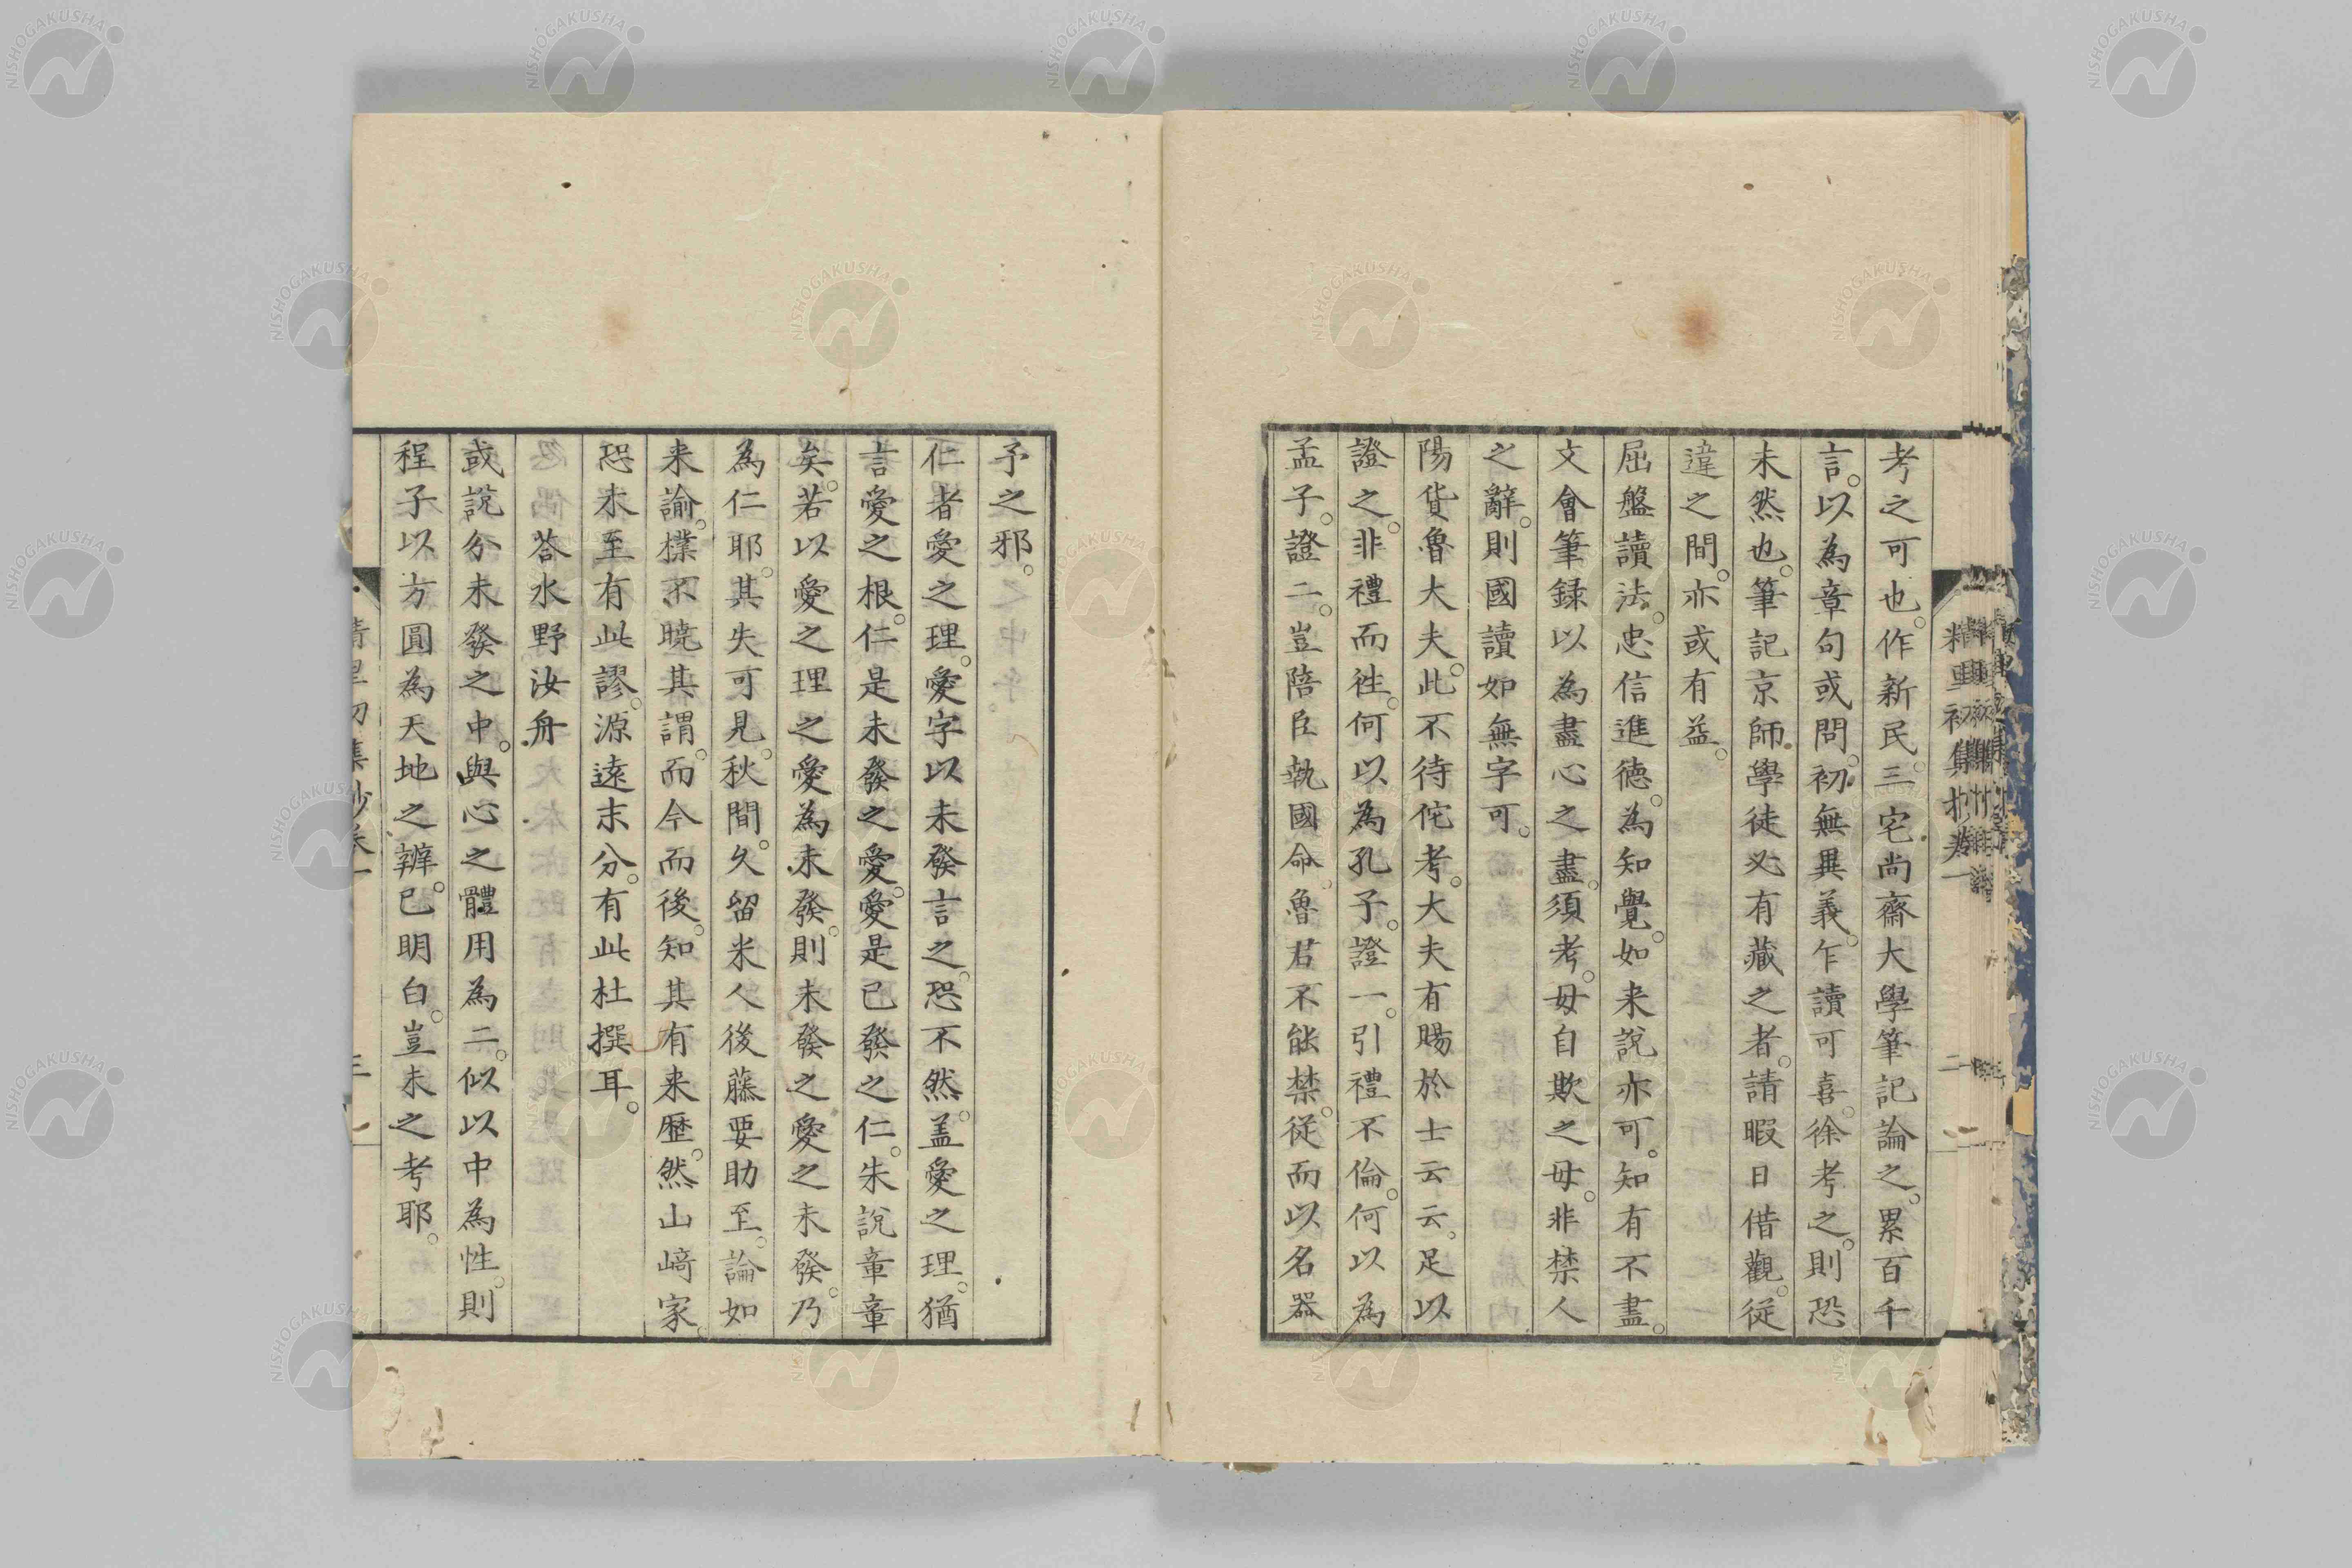 考之可也。作新民。三宅尚齋大學筆記論之。累百千
言。以為章句或問。初無異義。乍讀可喜。徐考之。則恐
未然也。筆記京師學徒必有藏之者。請暇日借觀。從
違之間。亦或有益。
屈盤讀法。忠信進德。為知覺。如来說亦可。知有不盡。
文會筆録以為盡心之盡。須考。毋自欺之毋。非禁人
之辭。則國讀如無字可。
陽貨魯大夫。此不待侘考。大夫有賜於士云云。足以
證之。非禮而徃。何以為孔子。證一。引禮不倫。何以為
孟子。證二。豈陪臣執國命。魯君不能禁。從而以名器
予之邪。
仁者愛之理。愛字以未發言之。恐不然。盖愛之理。猶
言愛之根。仁是未發之愛。愛是已發之仁。朱說章章
矣。若以愛之理之愛為未發。則未發之愛之未發。乃
為仁耶。其失可見。秋間。久留米人後藤要助至。論如
来諭。樸不曉其謂。而今而後。知其有来歴。然山﨑家。
恐未至有此謬。源遠末分。有此杜撰耳。
荅水野汝舟
或說分未發之中。與心之體用為二。似以中為性。則
程子以方圓為天地之辨。已明白。豈未之考耶。
精里初集抄卷一
二
NISHOGAKUSHA